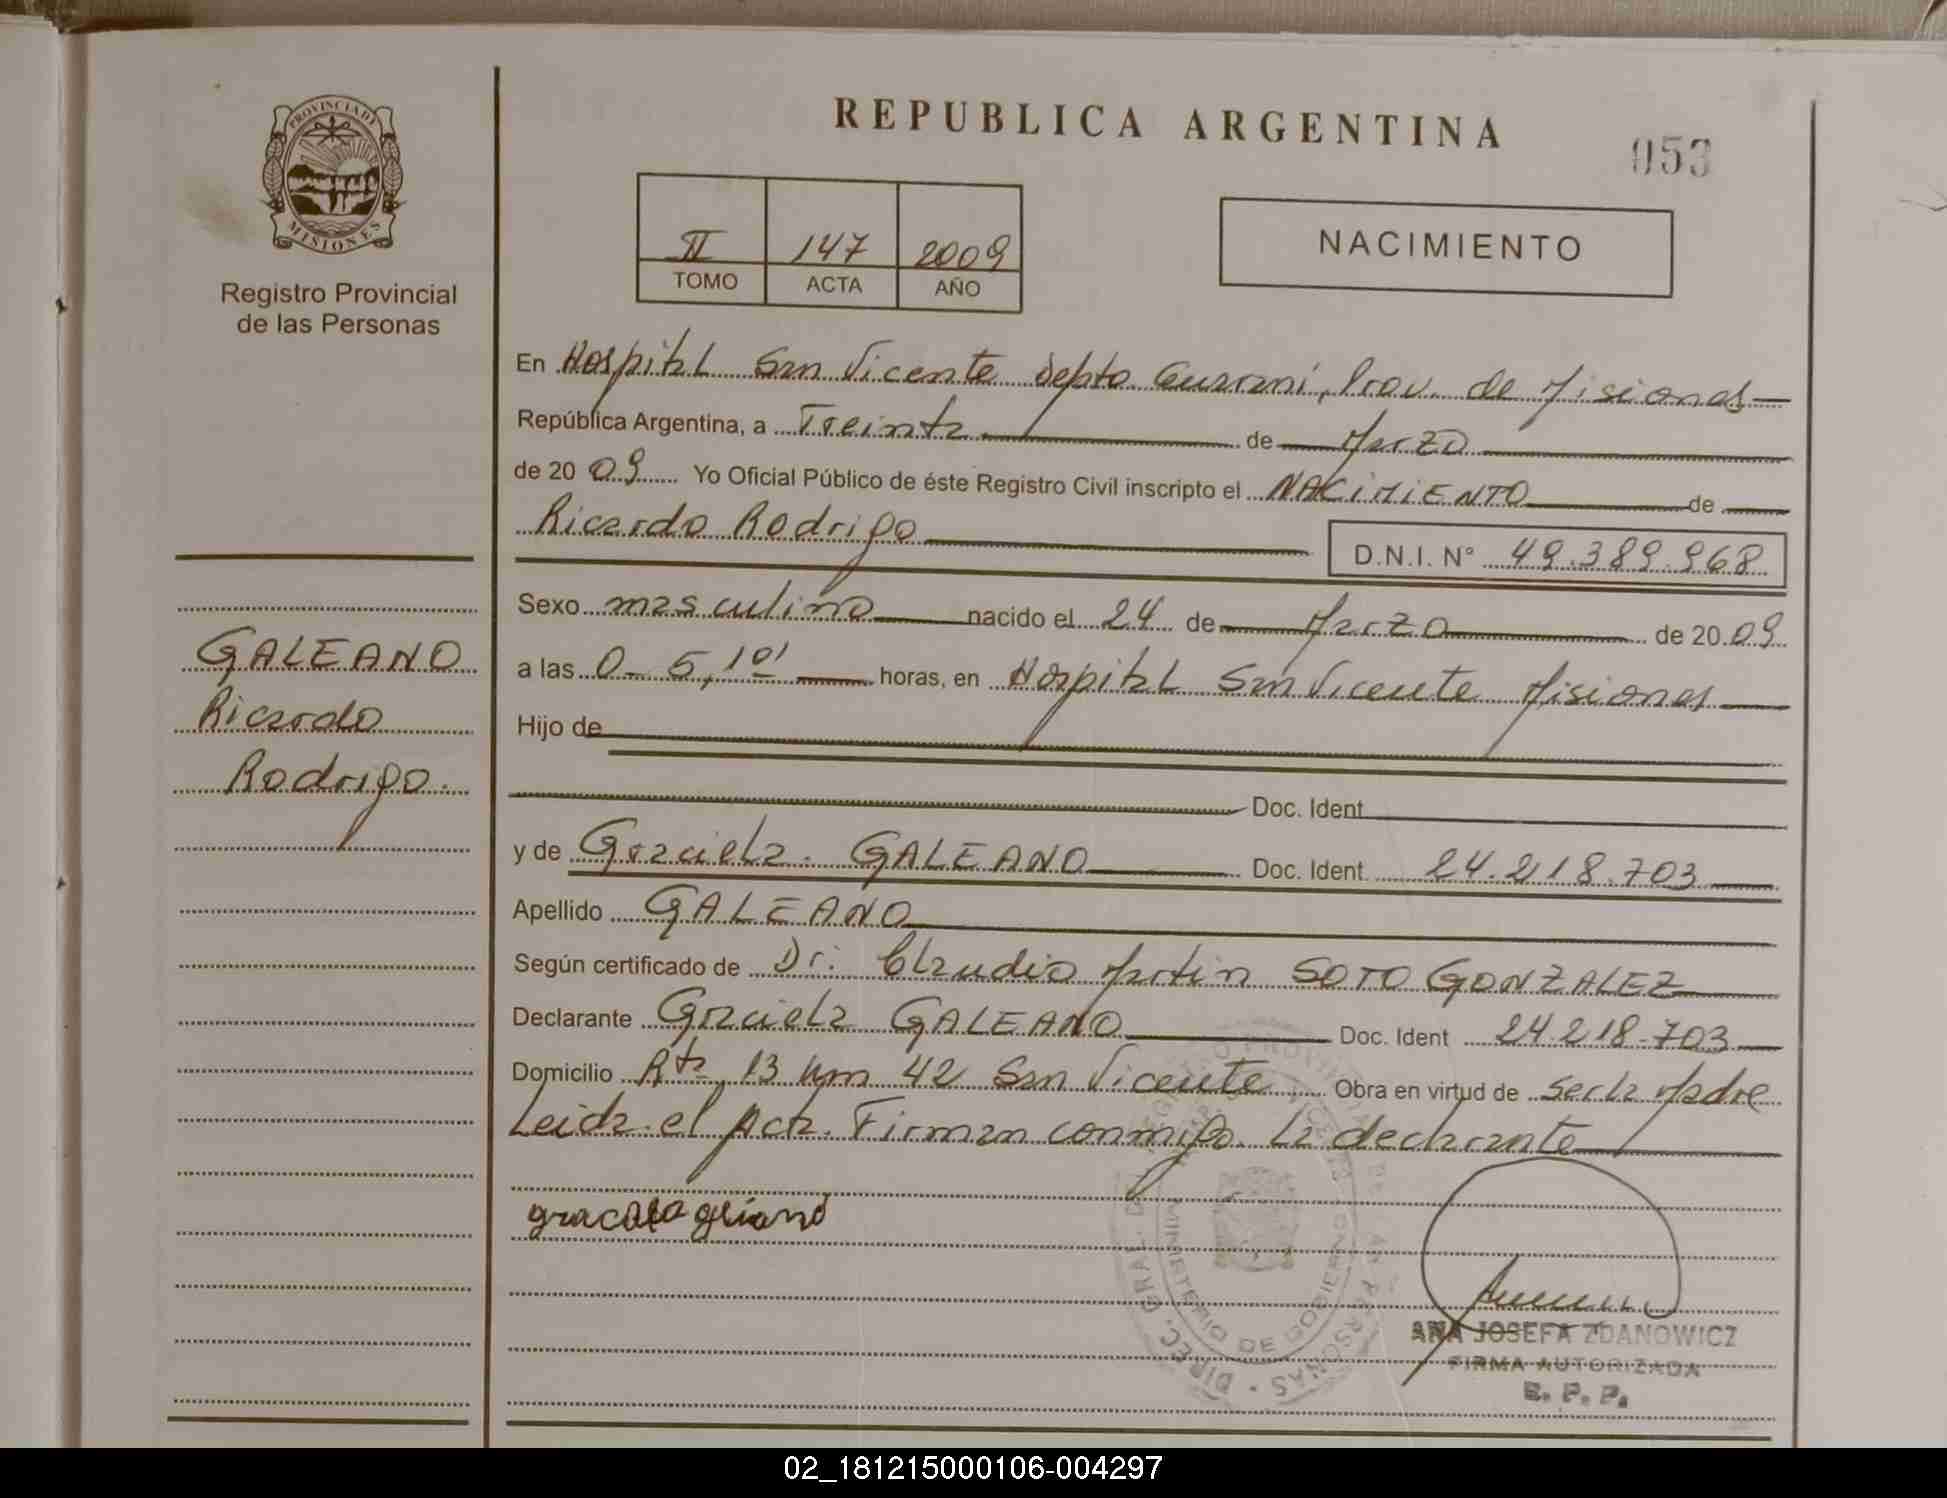 PROVINCIA DE
MISIONES
Registro Provincial
de las Personas
GALEANO
Ricardo
Rodrigo.
REPUBLICA ARGENTINA
053
II 147 2009
TOMO ACTA AÑO
NACIMIENTO
En Hospital San Vicente Depto Guaraní, Prov. de Misiones
República Argentina, a Treinta de Marzo
de 20 09 Yo Oficial Público de éste Registro Civil inscripto el NACIMIENTO de
Ricardo Rodrigo D.N.I. N° 49.389.968
Sexo masculino nacido el 24 de Marzo de 20 09
a las 0-5,10' horas, en Hospital San Vicente Misiones
Hijo de
Doc. Ident
y de Graciela. GALEANO Doc. Ident 24.218.703
Apellido GALEANO
Según certificado de Dr. Claudio Martin SOTO GONZALEZ
Declarante Graciela GALEANO Doc. Ident 24.218.703
Domicilio Rta 13 km 42 San Vicente Obra en virtud de ser la Madre
Leida el Acta. Firman conmigo. La declarante
DIREC. GRAL. DEL REGISTRO PROVINCIAL DE LAS PERSONAS
MINISTERIO DE GOBIERNO
ANA JOSEFA ZDANOWICZ
FIRMA AUTORIZADA
R. P. P.
02_181215000106-004297